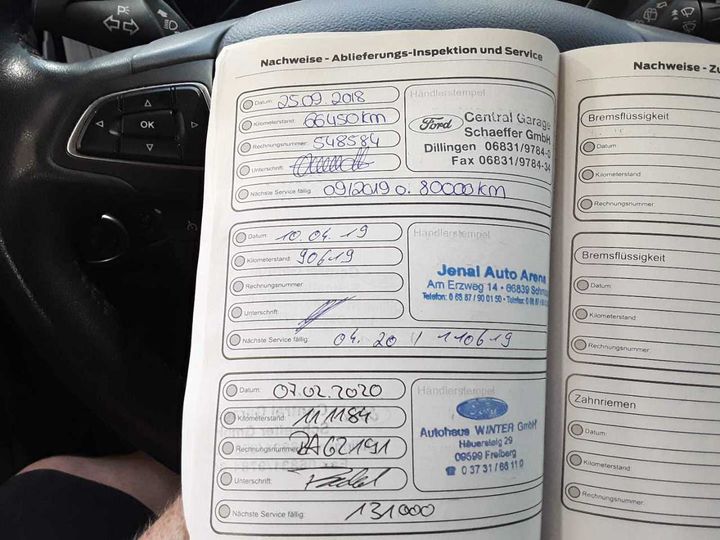 OK
Nachweise - Ablieferungs-Inspektion und Service
Datum: 25.09.2018
Kilometerstand: 66450 km
Rechnungsnummer: 548584
Unterschrift:
Nächste Service fällig: 09/2019 o. 80000 km
Händlerstempel
Ford Central Garage
Schaeffer GmbH
Dillingen 06831/9784-0
Fax 06831/9784-34
Datum: 10.04.19
Kilometerstand: 90619
Rechnungsnummer:
Unterschrift:
Nächste Service fällig: 04.20 // 110619
Händlerstempel
Jenal Auto Arena
Am Erzweg 14 •
Datum: 07.02.2020
Kilometerstand: 111184
Rechnungsnummer: RA62191
Unterschrift:
Nächste Service fällig: 131000
Händlerstempel
Ford
Autohaus WINTER GmbH
Häuersteig 29
09599 Freiberg
☎ 0 37 31/66 11 0
Nachweise - Zu
Bremsflüssigkeit
Datum:
Kilometerstand:
Rechnungsnummer:
Bremsflüssigkeit
Datum:
Kilometerstand:
Rechnungsnummer:
Zahnriemen
Datum:
Kilometerstand:
Rechnungsnummer: